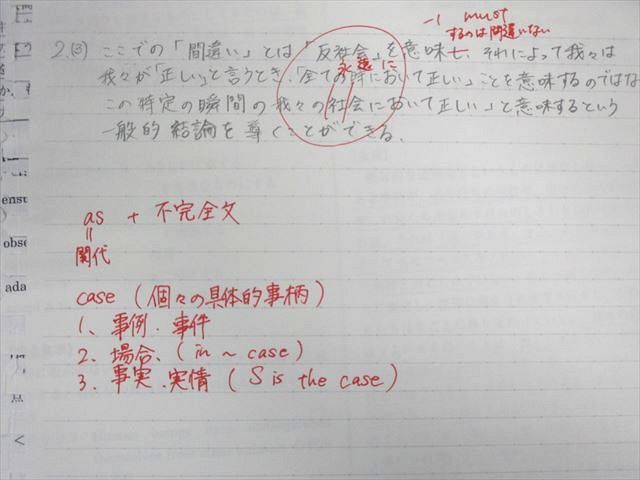 -1 must
するのは間違いない
2.(3) ここでの「間違い」とは「反社会」を意味し、それによって我々は
永遠に
我々が「正しい」と言うとき、「全ての時において正しい」ことを意味するのではな
この特定の瞬間の我々の社会において正しい」と意味するという
一般的結論を導くことができる.
as + 不完全文
=
関代
case (個々の具体的事柄)
1、事例.事件
2.場合、(in ~ case)
3.事実.実情 (S is the case)
enst
obse
ada